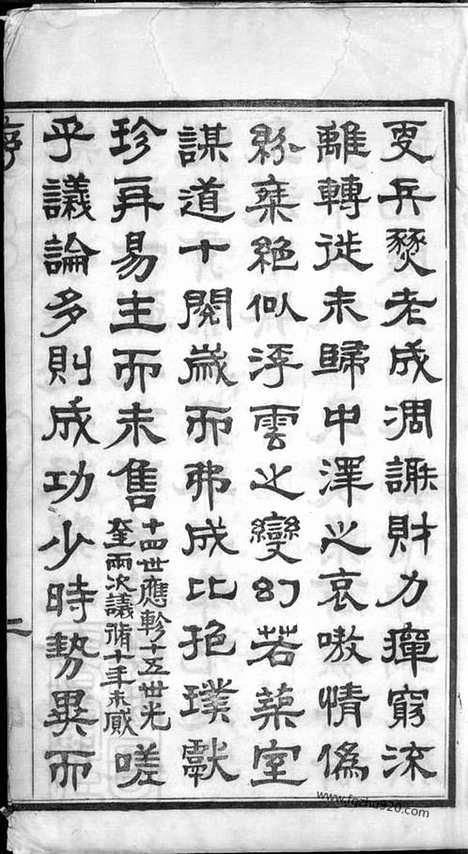 更兵燹老成凋謝財力癉窮流
離轉徙未歸中澤之哀嗷情僞
紛乘絕似浮雲之變幻若築室
謀道十閱歲而弗成比抱璞獻
珍再易主而未售
十四世應軫十五世光
奎兩次議脩十年未蕆
嗟
乎議論多則成功少時勢異而
序
二
www.fgzhu920.com